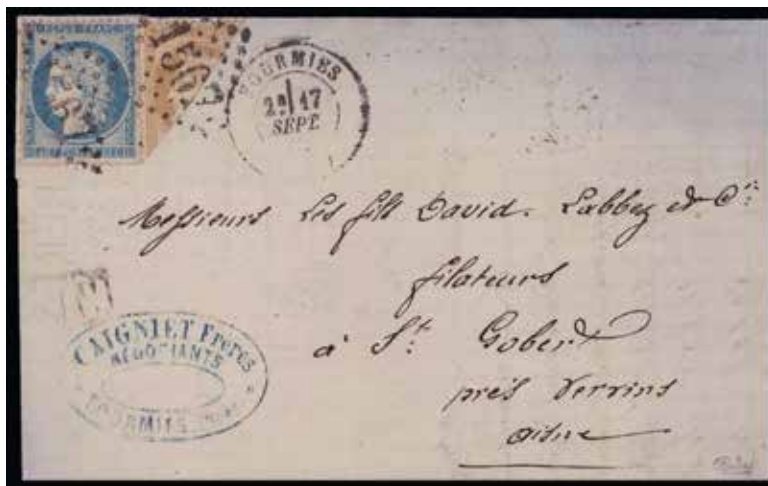 156
FOURMIES
2E 17
SEPT
Messieurs Les fils David. Labbez et Cie:
filateurs
à St. Gobert
près Vervins
aisne
CAIGNIET Frères
NÉGOCIANTS
FOURMIES